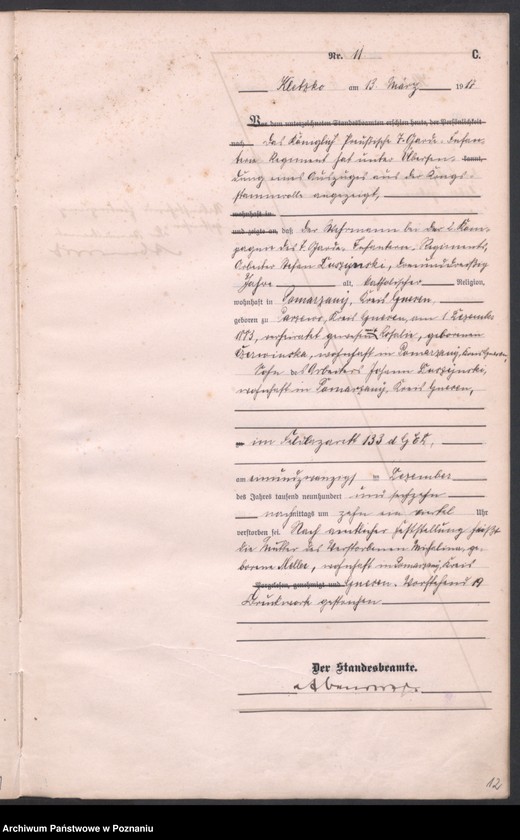 Nr. 11 C.
Kletzko am 13. März 1917
Vor dem unterzeichneten Standesbeamten erschien heute, der Persönlichkeit
nach Das Königlich Preußische 7. Garde-Infan-
terie Regiment hat unter Übersen-
dung eines Auszuges aus der Kriegs-
stammrolle angezeigt,
wohnhaft in
und zeigte an, daß der Wehrmann bei der 2. Kom-
pagnie des 7. Garde-Infanterie-Regiments,
Arbeiter Stefan Duszynski, dreiunddreißig
Jahre alt, katholischer Religion,
wohnhaft in Pomarzany, Kreis Gnesen,
geboren zu Kreis Gnesen, am 1. Dezember
1883, verheiratet gewesen mit Rosalie, geborenen
Czerwinska, wohnhaft in Pomarzany, Kreis Gnesen,
Sohn des Arbeiters Johann Duszynski,
wohnhaft in Pomarzany, Kreis Gnesen,
im Feldlazarett 133
am einundzwanzigsten Dezember
des Jahres tausend neunhundert und sechzehn
nachmittags um zehn ein viertel Uhr
verstorben sei. Nach amtlicher Feststellung heißt
die Mutter des Verstorbenen Michalina, ge-
borene wohnhaft in Pomarzany, Kreis
Vorgelesen, genehmigt und Gnesen. Vorstehend
Druckworte gestrichen
Der Standesbeamte.
12
Archiwum Państwowe w Poznaniu